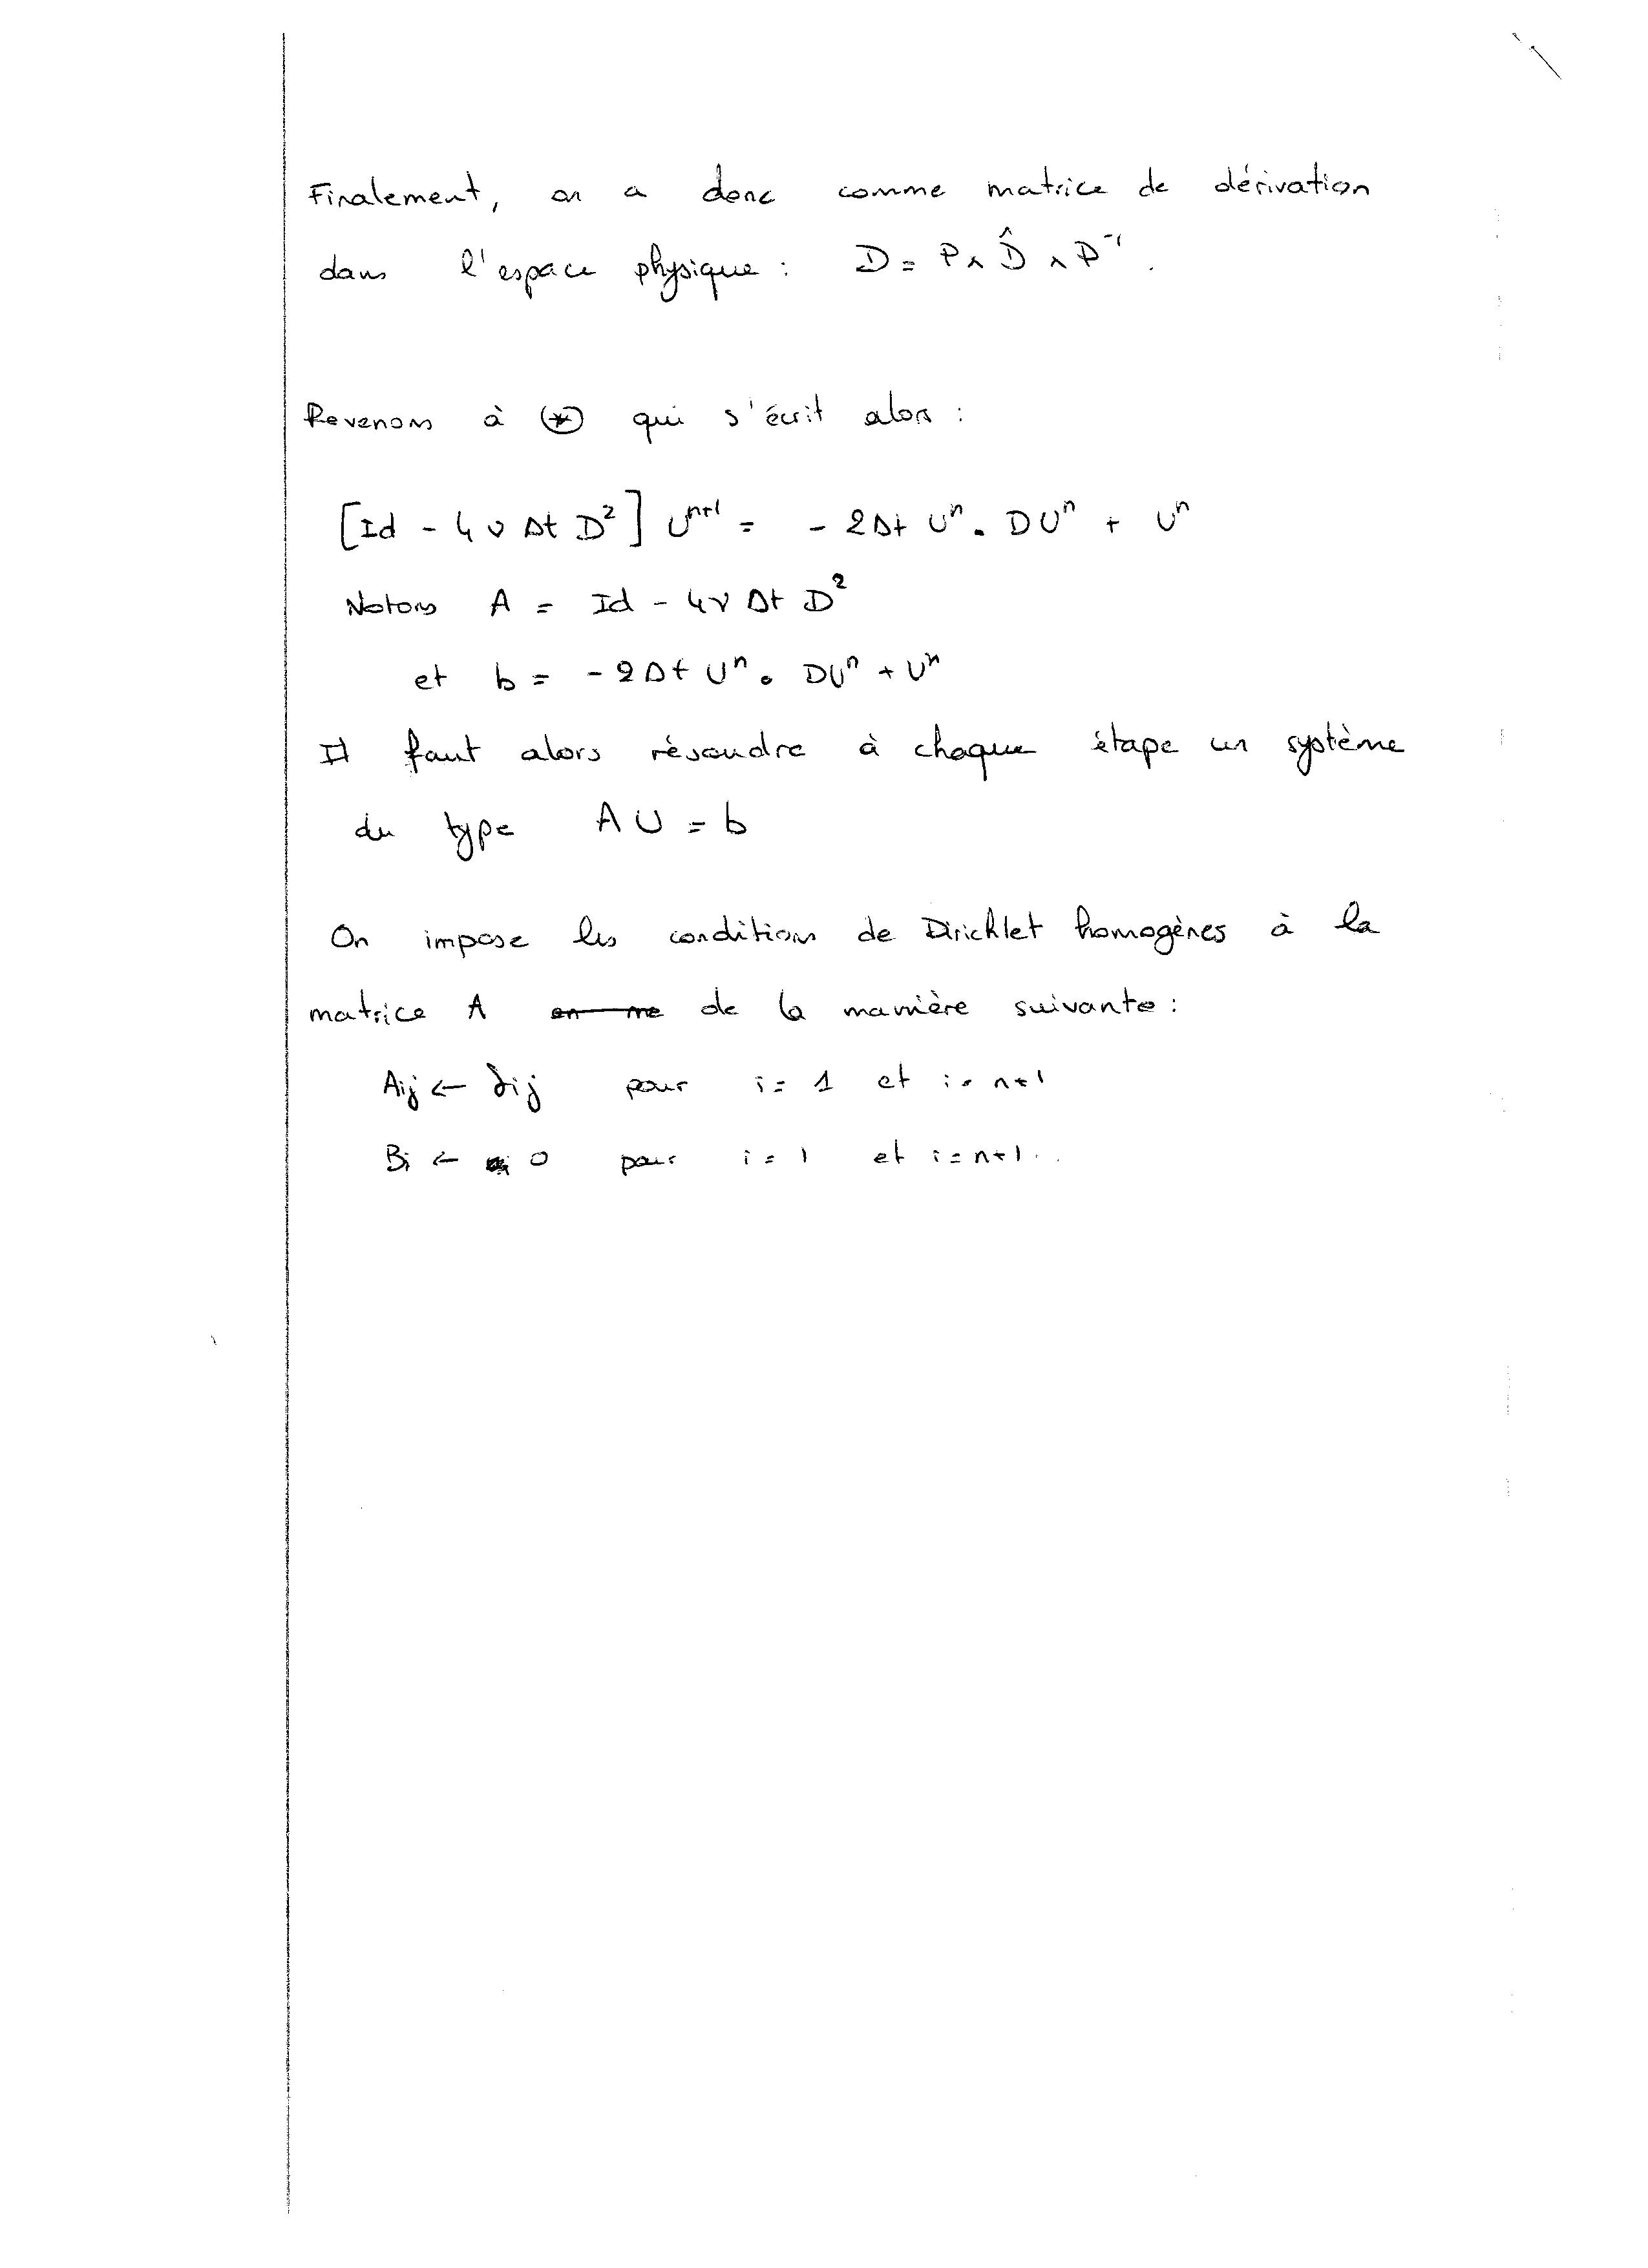 Finalement, on a donc comme matrice de dérivation
dans l'espace physique : D = P × D̂ × P⁻¹.
Revenons à ⊛ qui s'écrit alors :
[Id - 4 ν Δt D²] Uⁿ⁺¹ = - 2Δt Uⁿ . DUⁿ + Uⁿ
Notons A = Id - 4ν Δt D²
et b = - 2Δt Uⁿ . DUⁿ + Uⁿ
Il faut alors résoudre à chaque étape un système
du type A U = b
On impose les conditions de Dirichlet homogènes à la
matrice A en me de la manière suivante :
Aij ← δij pour i = 1 et i = n+1
Bi ← 0 pour i = 1 et i = n+1.